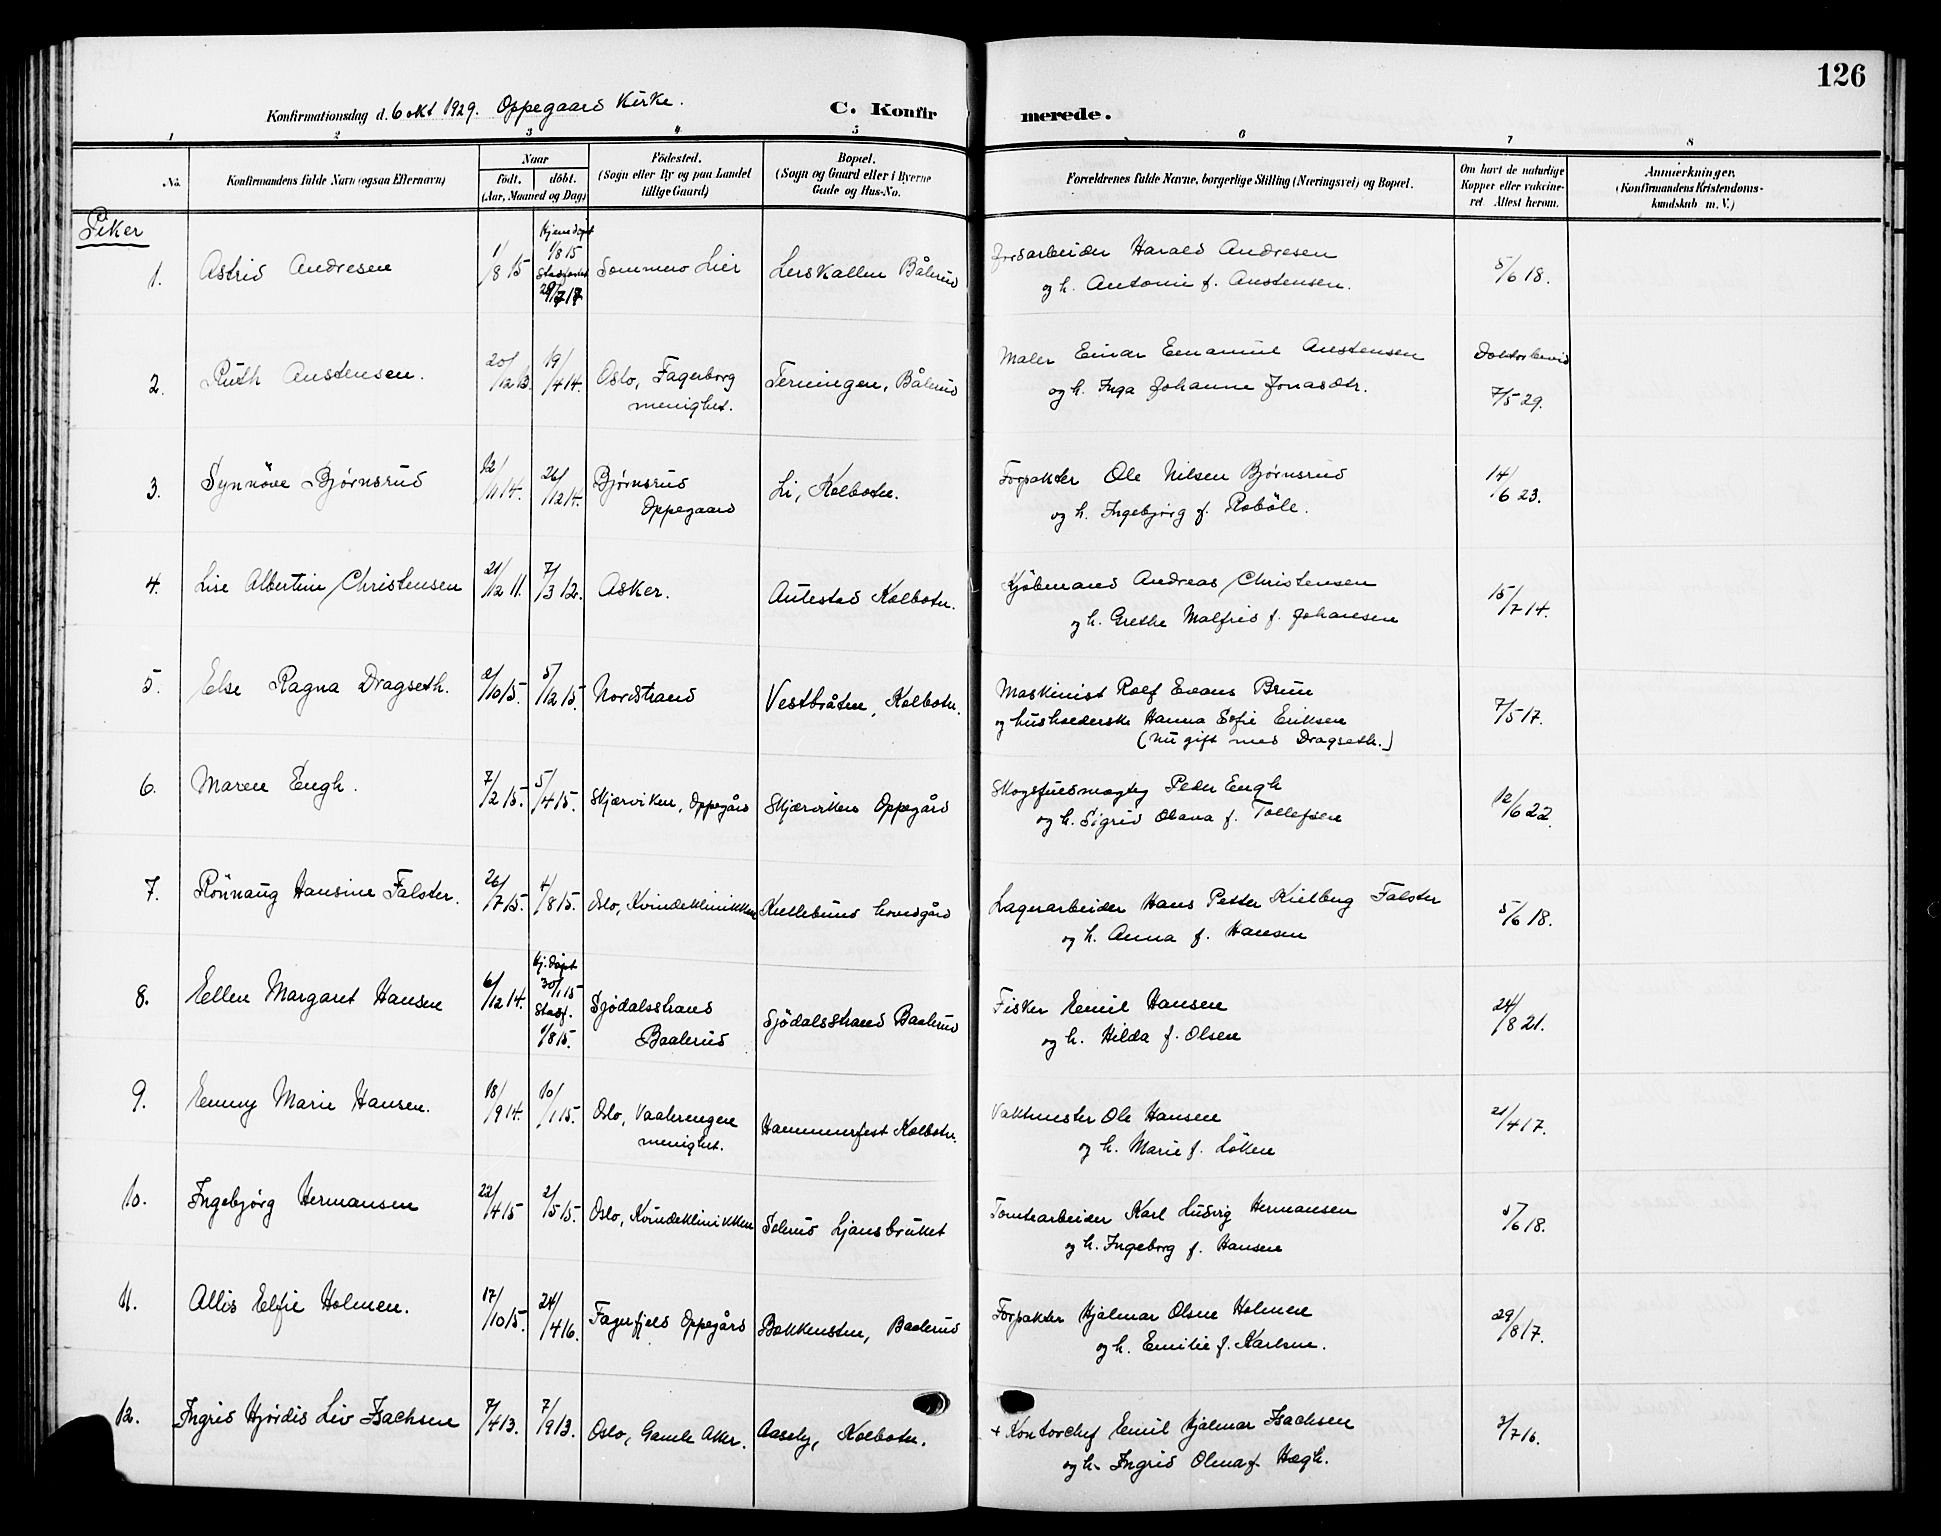 126
Konfirmationsdag d. 6 okt 1929. Oppegaard Kirke.
C. Konfirmerede.
1 2 3 4 5 6 7 8
No.
Konfirmandens fulde Navn (ogsaa Efternavn)
Naar
födt. döbt.
(Aar, Maaned og Dag)
Födested.
(Sogn eller By og paa Landet
tillige Gaard)
Bopæl.
(Sogn og Gaard eller i Byerne
Gade og Hus-No.
Forældrenes fulde Navne, borgerlige Stilling (Næringsvei) og Bopæl.
Om havt de naturlige
Kopper eller vakcine-
ret Attest herom.
Anmærkninger.
(Konfirmandens Kristendoms-
kundskab m. V.)
Piker
1. Astrid Andresen
1/8 15
Hjemdöpt
1/8 15
29/7 17
Sommero Lier
Lerskallen Bålerud
Harald Andresen
og h. Antonie f. Austensen.
5/6 18.
2. Ruth Austensen.
20/12 13
19/4 14.
Oslo, Fagerborg
menighet.
Terningen, Bålerud
Maler Einar Emanuel Austensen
og h. Inga Johanne Jonasdtr.
7/5 29.
3. Synnöve Bjørnsrud
12/11 14.
26/12 14.
Bjørnsrud
Oppegaard
Li, Kolbotn.
Forpakter Ole Nilsen Bjørnsrud
og h. Ingebjørg f. Roböle.
14/6 23.
4. Lise Albertine Christensen
21/12 11.
7/3 12.
Asker.
Aulestad Kolbotn.
Kjöbmand Andreas Christensen
og h. Grethe Malfrid f. Johansen
15/7 14.
5. Else Ragna Dragseth.
2/10 15.
5/12 15.
Nordstrand
Vestbråten, Kolbotn.
Maskinist Rolf Evans Bruu
og husholderske Hanna Sofie Eriksen
(nu gift med Dragseth.)
7/5 17.
6. Maren Engh.
7/2 15.
5/4 15.
Skjærviken, Oppegård
Skjærviken Oppegård
Skogsfuldmægtig Peder Engh
og h. Sigrid Olava f. Tollefsen
12/6 22.
7. Rönnaug Hansine Falster.
26/7 15.
4/8 15.
Oslo, Kvindeklinikken
Kullebund hovedgård
Lagerarbeider Hans Petter Kielberg Falster
og h. Anna f. Hansen
5/6 18.
8. Ellen Margaret Hansen
6/12 14.
Hj. döpt
30/1 15
Stadf.
1/8 15.
Sjödalsstrand
Baalerud
Sjödalsstrand Baalerud
Fisker Emil Hansen
og h. Hilda f. Olsen
24/8 21.
9. Emmy Marie Hansen.
18/9 14.
10/1 15.
Oslo, Vaalerengen
menighet.
Hammerfest Kolbotn.
Vaktmester Ole Hansen
og h. Marie f. Löken
21/4 17.
10. Ingebjørg Hermansen
22/4 15
2/5 15.
Oslo, Kvindeklinikken
Solerud Ljansbruket
Tomtearbeider Karl Ludvig Hermansen
og h. Ingeborg f. Hansen
5/6 18.
11. Allis Elfie Holmen.
17/10 15.
24/4 16.
Fagerfjeld Oppegård
Bekkensten, Baalerud
Forpakter Hjalmar Olsen Holmen
og h. Emilie f. Karlsen.
29/8 17.
12. Ingrid Hjørdis Liv Isachsen
7/4 13.
7/9 13.
Oslo, Gamle Aker.
Aaseby, Kolbotn.
+ Kontorchef Emil Hjalmar Isachsen
og h. Ingrid Olena f. Høgh.
3/7 16.